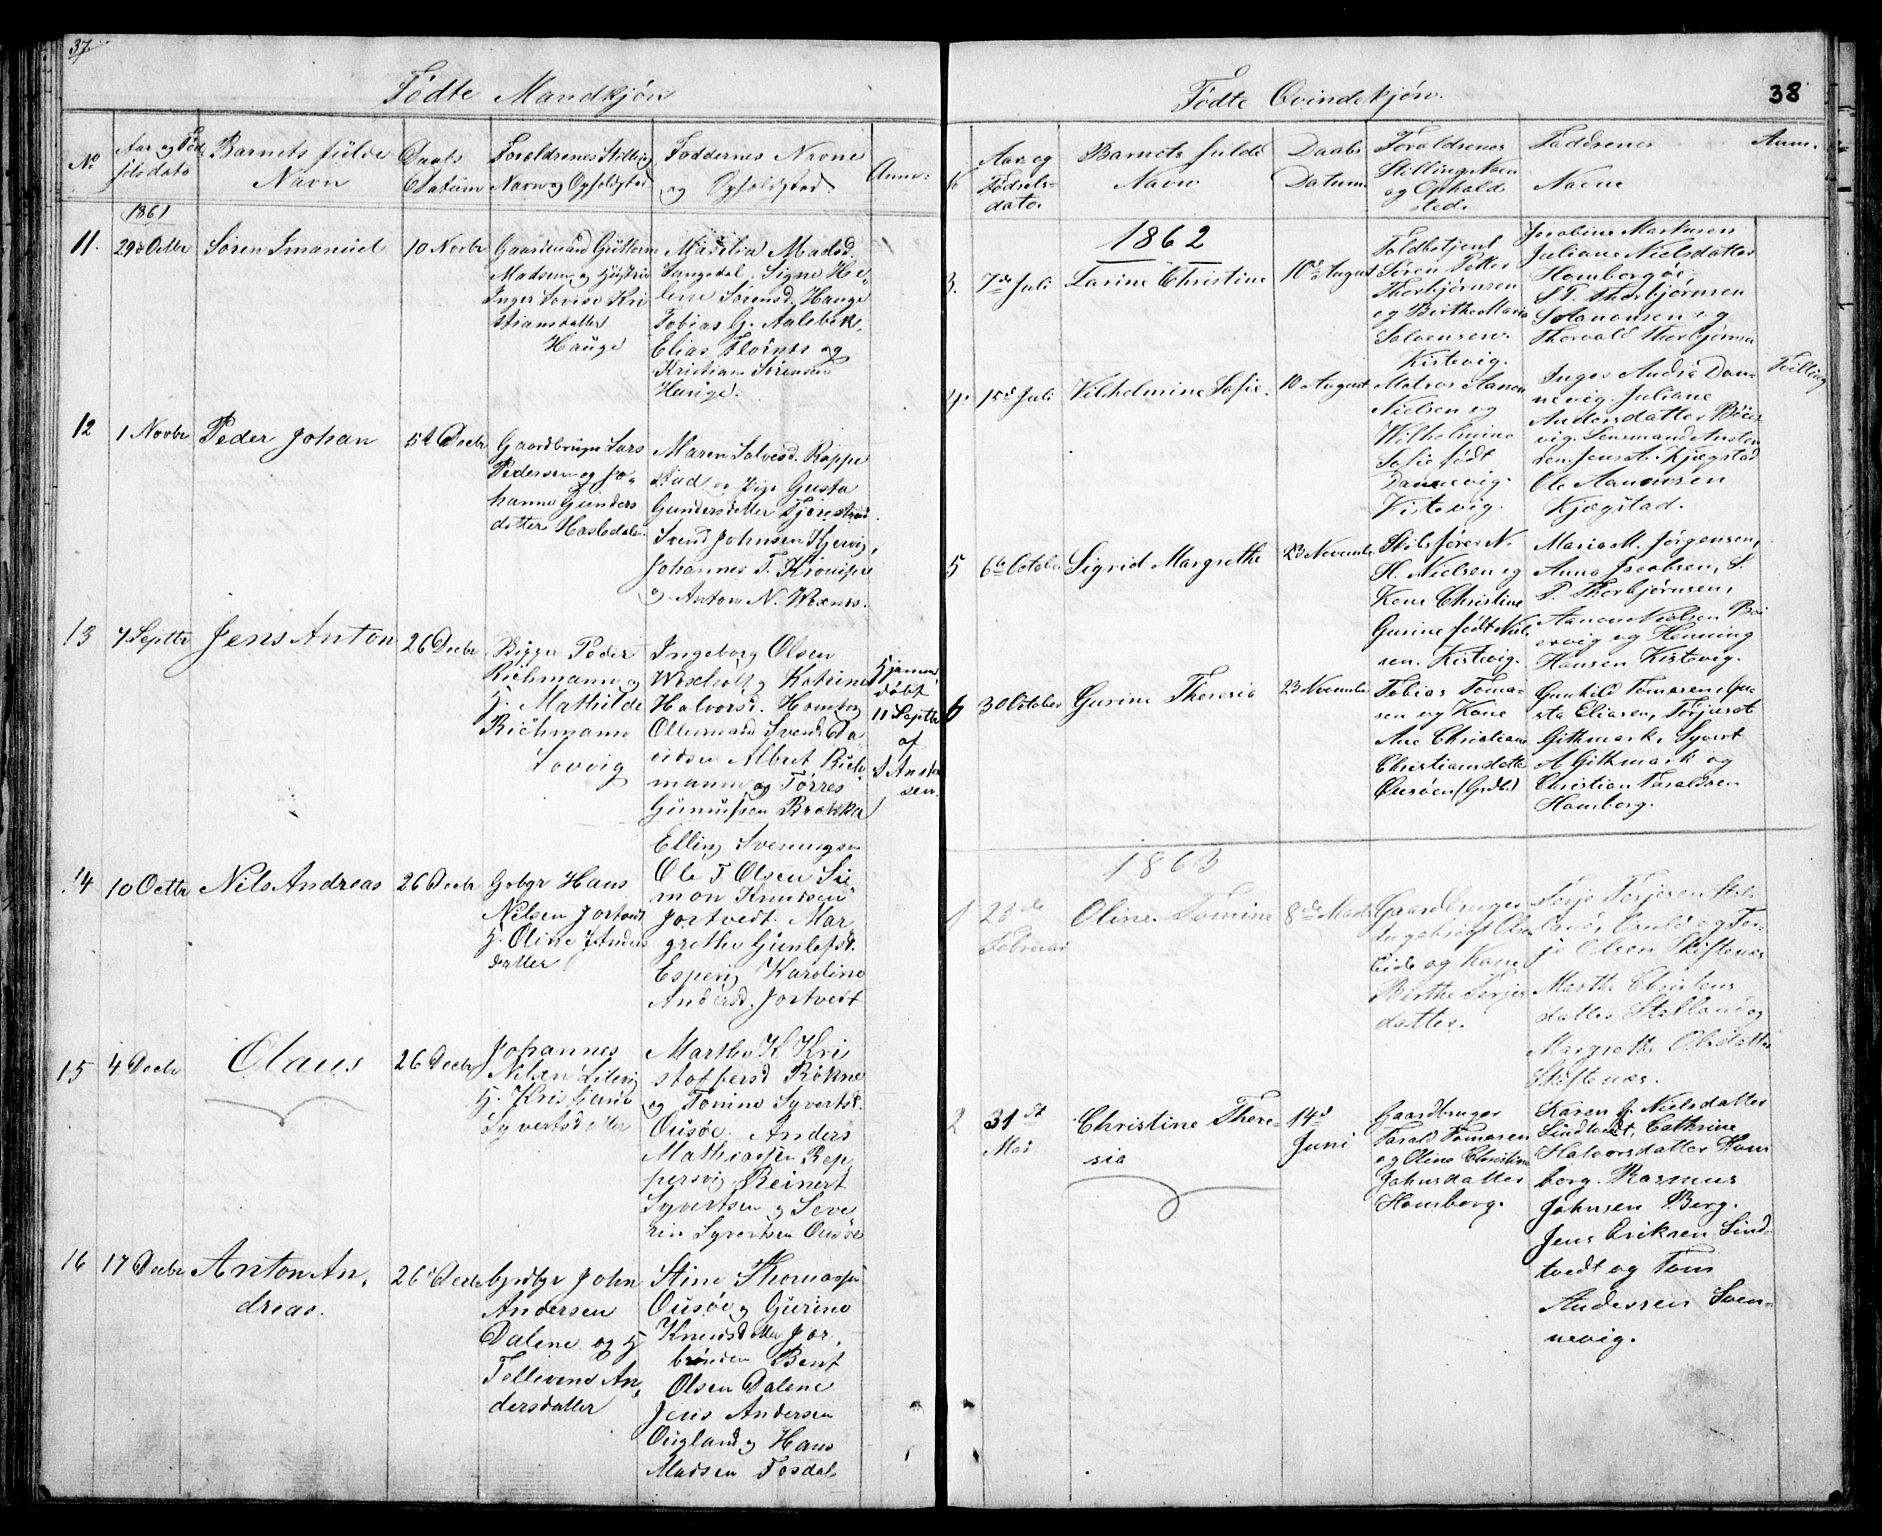 37
Fødte Mandkjøn
No
Aar og Fød
selsdato
Barnets fulde
Navn
Daabs
Datum
Forældrenes Stilling
Navn og Opholdsted
Faddernes Navne
og Opholdsted.
Anm:
1861
11.
29de Octbr
Søren Imanuel
10 Novbr
Gaardmand Guttorm
Madsen og Hustru
Inger Lovise Kri
stiansdatter
Hauge
Madsd.
Langedal. Signe He-
lene Sørensd. Hauge
Tobias G. Aalebek,
Elias Flørnes og
Kristian Sørensen
Hauge.
12
1 Novbr
Peder Johan
5t Decbr
Gaardbruger Lars
Pedersen og Jo-
hanne Gunders
datter Hasledalen.
Maren Salvesd. Roppe
stad og Pige Gusta
Gundersdatter Tjørestrand.
Svend Johnsen Hjervig,
Johannes T.
og Anton N. Wrænes.
13
7 Septbr
Jens Anton
26 Decbr
Peder
Richmann og
H. Mathilde
Richmann
Lovvig
Ingeborg Olsen
Woxholt og Katrine
Halvorsd. Homborg
Svend Da-
vidsen Albert Rich-
mann og Tørres
Gumussen Brække
Hjemme
døbt
11 Septbr
af
J Ansten
sen.
14
10 Octbr
Nils Andreas
26 Decbr
Gbgr Hans
Nilsen Jortvedt
H. Oline J Anders
datter
Elling Sveningsen
Ole T Olsen Si
mon Knudsen
Jortvedt. Mar-
grethe Gunlefsd.
Espevig Karoline
Andersd. Jortvedt
15
4 Decbr
Olaus
26 Decbr
Johannes
Nilsen Lilevig
H. Kristiane
Syvertsdatter
Marthe K Kri
stoffersd Røkne
og Tomine Syvertsd.
Ousøe. Anders
Mathiassen Rep-
persvig Reinert
Syvertsen og Seve
rin Syvertsen Ousøe
16
17 Decbr
Anton An-
dreas.
26 Decbr
Grdbgr John
Andersen
Dalene og H
Tellevine An-
dersdatter
Stine Thomassen
Ousøe og Gurine
Knudsdatter Jor-
brønden Bent
Olsen Dalene
Jens Andersen
Ougland og Hans
Madsen Fosdal
Fødte Qvindekjøn.
38
Aar og
Fødsels-
dato.
Barnets fulde
Navn
Daabs
Datum
Forældrenes
Stilling Navn
og Ophold
sted.
Faddrenes
Navne
Anm.
1862
3.
7de Juli
Larine Christine
10de August
Toldbetjent
Søren Petter
Thorbjørnsen
og Birthe Marie
Salvensen.
Kistevig.
Jacobine Martinsen
Juliane Nielsdatter
Homborgøe.
S. P. Thorbjørnsen
og
Thorvald Thorbjørnsen
4.
15d Juli
Vilhelmine Sofie.
10 August
Matros Aanon
Nielsen og
Wilhelmine
Sofie født
Dannevig.
Kistevig.
Inger Andrea Dan-
nevig. Juliane
Andersdatter Bøier
vig. Lensmand Ansten
sen. Jens A. Kjægstad
Ole Aanonsen
Kjægstad.
Tvilling
5
6te October
Sigrid Margrethe
23 November
Skibsfører N.
H. Nielsen og
Kone Christine
Gurine født Niel
sen. Kistevig.
Maria M. Jørgensen,
Anna Jacobsen, S.
P. Thorbjørnsen,
Aanon Nielsen Bøi
ervig og Henning
Hansen Kistevig.
6
30 October
Gurine Theresia
23 November
Tobias Toma-
sen og Kone
Ane Christiane
Christiansdatter
Ousøen (Grdb.)
Gunhild Tomasen, Gu
sta Eliasen, Terjus et
Githmark, Syvert
A Githmark og
Christian Taraldsen
Homborg.
1863
1
23de
Februar
Oline Tomine
8de Marts
Gaardbruger
Ingebret Olsen
Eide og Kone
Birthe Terjes
datter.
Terje Terjesen Stal
land, og Ter-
je Olsen Skiftenæs
Marthe Christens
datter Stalland og
Margrethe Olsdatter
Skiftenæs.
2
31st
Mai
Christine There-
sia
14d
Juni
Gaardbruger
Tarald Tomasen
og Oline Christine
Johnsdatter
Homborg.
Karen G. Nielsdatter
Lindtvedt, Cathrine
Halvorsdatter Hom
borg. Rasmus
Johnsen Berg.
Jens Eriksen Lind-
tvedt og Tom
Andersen Sven-
nevig.